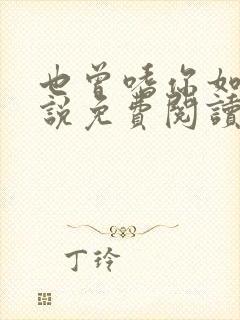 也曾嗜你如
說免費閱讀
丁玲